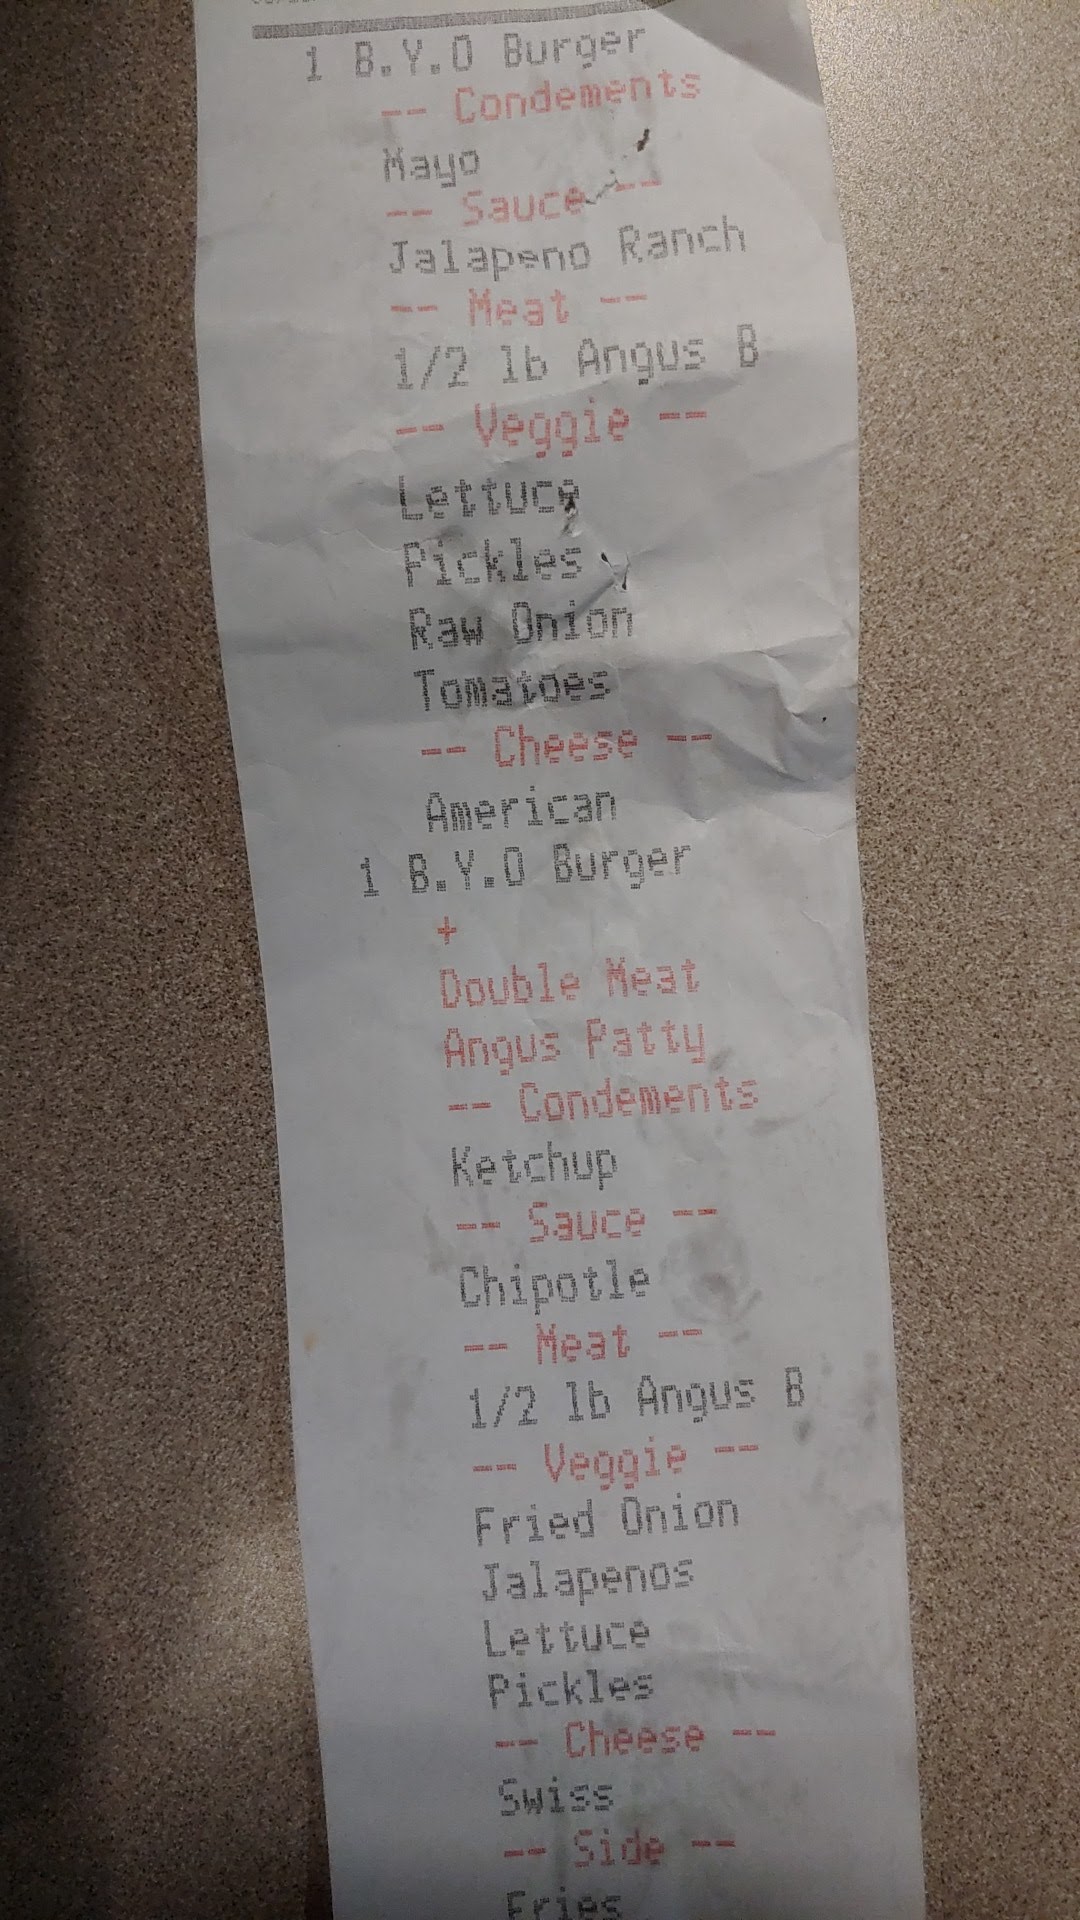 1 B.Y.O Burger
-- Condements
Mayo
-- Sauce --
Jalapeno Ranch
-- Meat --
1/2 lb Angus B
-- Veggie --
Lettuce
Pickles
Raw Onion
Tomatoes
-- Cheese --
American
1 B.Y.O Burger
+
Double Meat
Angus Patty
-- Condements
Ketchup
-- Sauce --
Chipotle
-- Meat --
1/2 lb Angus B
-- Veggie --
Fried Onion
Jalapenos
Lettuce
Pickles
-- Cheese --
Swiss
-- Side --
Fries